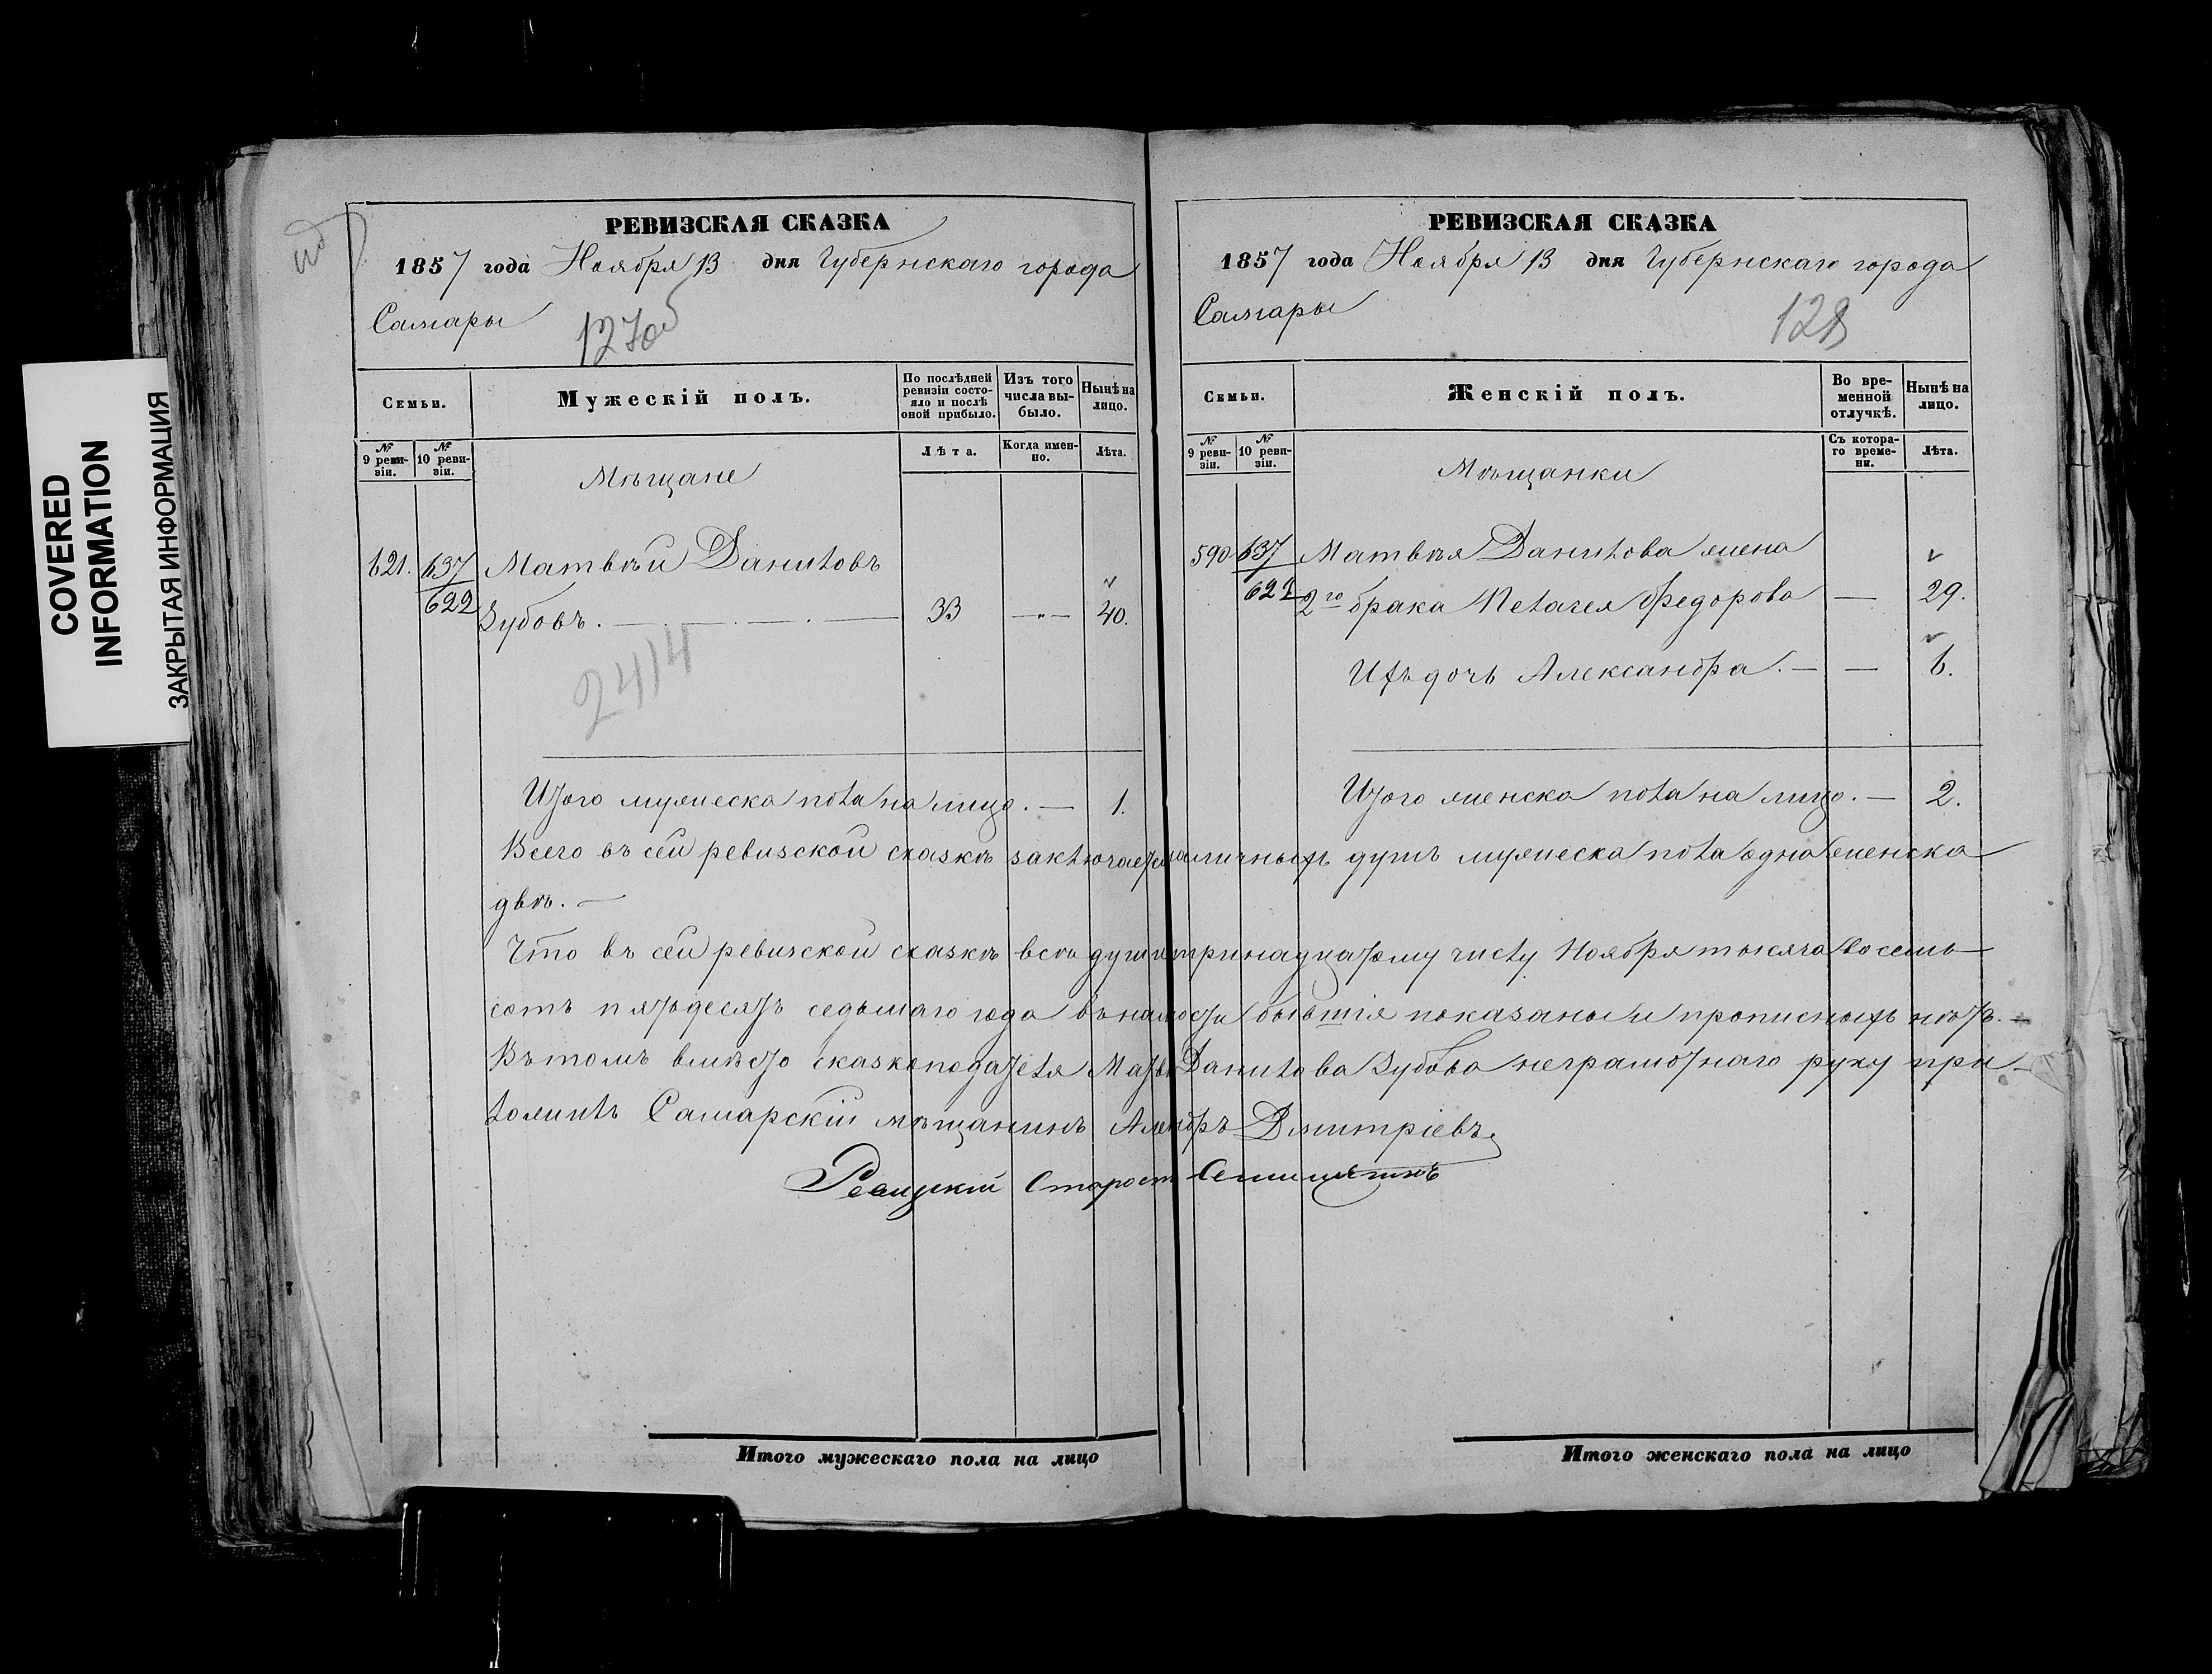 COVERED
INFORMATION
ЗАКРЫТАЯ ИНФОРМАЦИЯ
РЕВИЗСКАЯ СКАЗКА
1857 года Ноября 13 дня Губернскаго города
Самары
127об
Семьи.
Мужескій полъ.
По послѣдней ревизіи состояло и послѣ оной прибыло.
Изъ того числа выбыло.
Нынѣ на лицо.
№ 9 ревизіи.
№ 10 ревизіи.
Мѣщане
Лѣта.
Когда именно.
Лѣта.
621. 637 Матвѣй Даниловъ
622 Зубовъ. — 33 —"— 40.
2414
Итого мужеска пола на лицо. — 1.
РЕВИЗСКАЯ СКАЗКА
1857 года Ноября 13 дня Губернскаго города
Самары
128
Семьи.
Женскій полъ.
Во временной отлучкѣ.
Нынѣ на лицо.
№ 9 ревизіи.
№ 10 ревизіи.
Мѣщанки
Съ котораго времени.
Лѣта.
590 637 Матвѣя Данилова жена
622 2го брака Пелагея Федорова — 29.
Ихъ дочь Александра. — — 6.
Итого женска пола на лицо. — 2.
Всего въ сей ревизской сказкѣ заключается наличныхъ душъ мужеска пола одна женска
двѣ. —
Что въ сей ревизской сказкѣ всѣ души тринадцатому числу Ноября тысяча восемь
сотъ пятьдесятъ седьмаго года въ налости бывшія показаны и прописныхъ нѣтъ. —
Въ томъ вмѣсто сказкоподателя Матв Данилова Зубова неграмотнаго руку при
ложилъ Самарскій мѣщанинъ Дмитріевъ
Старост
Итого мужескаго пола на лицо
Итого женскаго пола на лицо